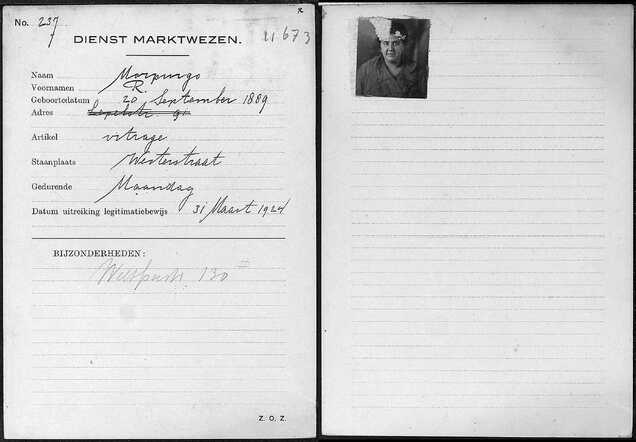 No. 237
7
DIENST MARKTWEZEN. 11673
Naam Morpurgo
Voornamen R.
Geboortedatum 20 September 1889
Adres
Artikel vitrage
Staanplaats Westerstraat
Gedurende Maandag
Datum uitreiking legitimatiebewijs 31 Maart 1924
BIJZONDERHEDEN:
Weesperstr. 130 II
Z. O. Z.